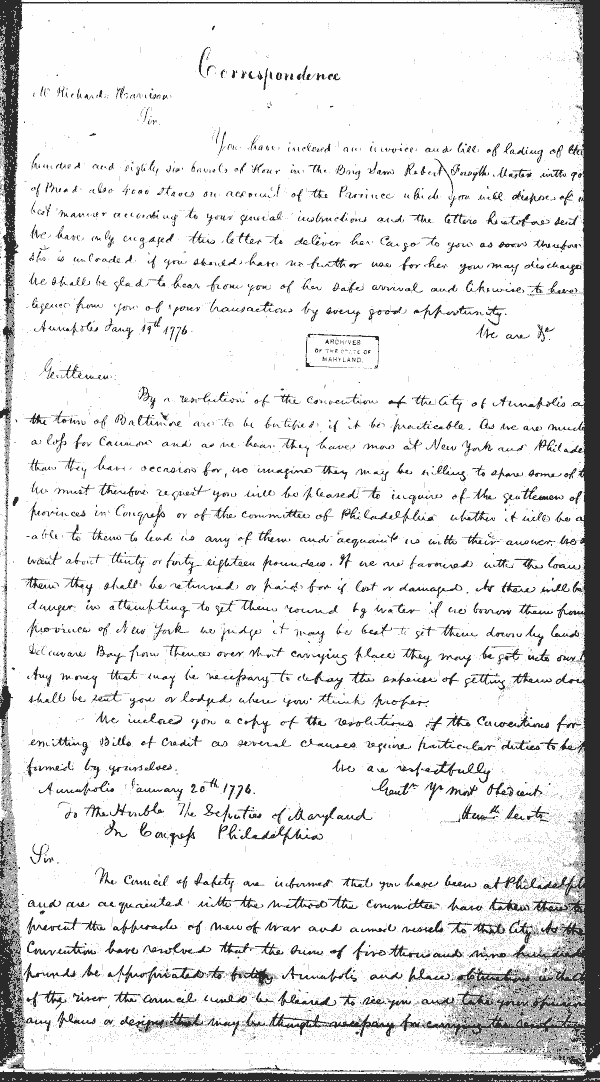 Correspondence
Mr Richard Harrison
Sir
You have inclosed an invoice and bill of lading of
hundred and eighty six barrels of flour in the Brig Sam Robert Forsyth Master with
of Bread also 4000 Staves on account of the Province which you will dispose of
best manner according to your general instructions and the letters heretofore sent
We have only engaged this letter to deliver her Cargo to you as soon therefore
she is unloaded if you should have no further use for her you may discharge
We shall be glad to hear from you of her safe arrival and likewise to have
ligence from you of your transactions by every good opportunity.
Annapolis Jany 19th 1776.
We are &c
ARCHIVES
OF THE STATE OF
MARYLAND.
Gentlemen.
By a resolution of the convention of the City of Annapolis a
the town of Baltimore are to be fortified if it be practicable. As we are much
a loss for Cannon and as we hear they have more at New York and Philade
than they have occasion for, we imagine they may be willing to spare some of
We must therefore request you will be pleased to inquire of the gentlemen of
provinces in Congress or of the committee of Philadelphia whether it will be a
-able to them to lend us any of them and acquaint us with their answer. We
want about thirty or forty eighteen pounders. If we are favoured with the loan
them they shall be returned or paid for if lost or damaged. As there will be
danger in attempting to get them round by water if we borrow them from
province of New York we judge it may be best to get them down by land
Delaware Bay from thence over short carrying place they may be got into our
Any money that may be necessary to defray the expense of getting them down
shall be sent you or lodged where you think proper.
We inclosed you a copy of the resolutions of the Conventions for
emitting Bills of Credit as several clauses require particular duties to be p
formed by yourselves.
We are respectfully
Annapolis January 20th 1776.
Gentn Yr most Obedient
Hum. Servts
To the Honble The Deputies of Maryland
In Congress Philadelphia
Sir.
The Council of Safety are informed that you have been at Philadelph
and are acquainted with the method the committee have taken there to
prevent the approach of men of war and armed vessels to that City. As the
Convention have resolved that the sum of five thousand nine hundred
pounds be appropriated to fortify Annapolis and place obstructions in
of the river, the council would be pleased to see you and take your opinion
any plans or designs that may be thought necessary for carrying the resolution